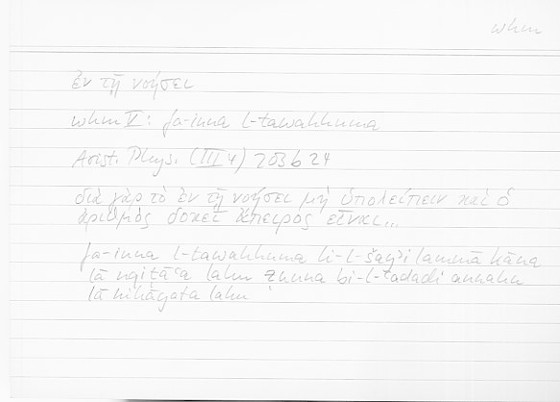 whm
ἐν τῇ νοήσει
whm V: fa-inna t-tawahhuma
Arist. Phys. (III 4) 203b24
διὰ γὰρ τὸ ἐν τῇ νοήσει μὴ ὑπολείπειν καὶ ὁ
ἀριθμὸς δοκεῖ ἄπειρος εἶναι...
fa-inna t-tawahhuma li-š-šayʾi lammā kāna
lā nqiṭāʿa lahu ẓunna bi-l-ʿadadi annahu
lā nihāyata lahu